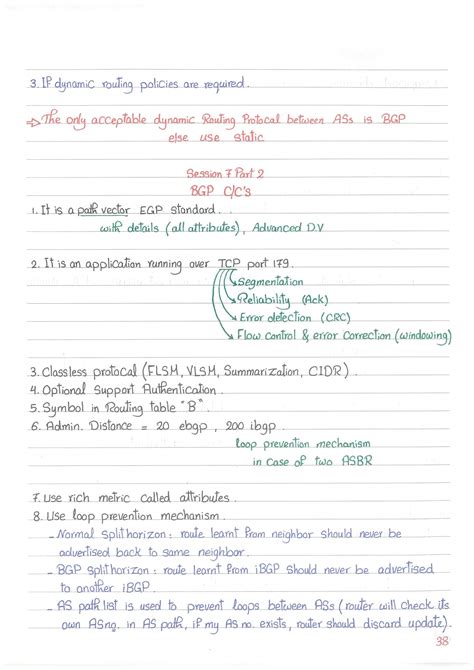 3. If dynamic routing policies are required.
⇒ The only acceptable dynamic Routing Protocal between ASs is BGP
else use static
Session 7 Part 2
BGP C/C's
1. It is a path vector EGP standard.
with details (all attributes), Advanced D.V
2. It is an application running over TCP port 179.
Segmentation
Reliability (Ack)
Error detection (CRC)
Flow control & error Correction (windowing)
3. Classless protocal (FLSM, VLSM, Summarization, CIDR).
4. Optional Support Authentication.
5. Symbol in Routing table "B".
6. Admin. Distance = 20 ebgp, 200 ibgp.
loop prevention mechanism
in case of two ASBR
7. Use rich metric called attributes.
8. Use loop prevention mechanism.
- Normal splithorizon: route learnt from neighbor should never be
advertised back to same neighbor.
- BGP splithorizon: route learnt from iBGP should never be advertised
to another iBGP.
- AS path list is used to prevent loops between ASs (router will check its
own AS no. in AS path, if my AS no. exists, router should discard update).
38